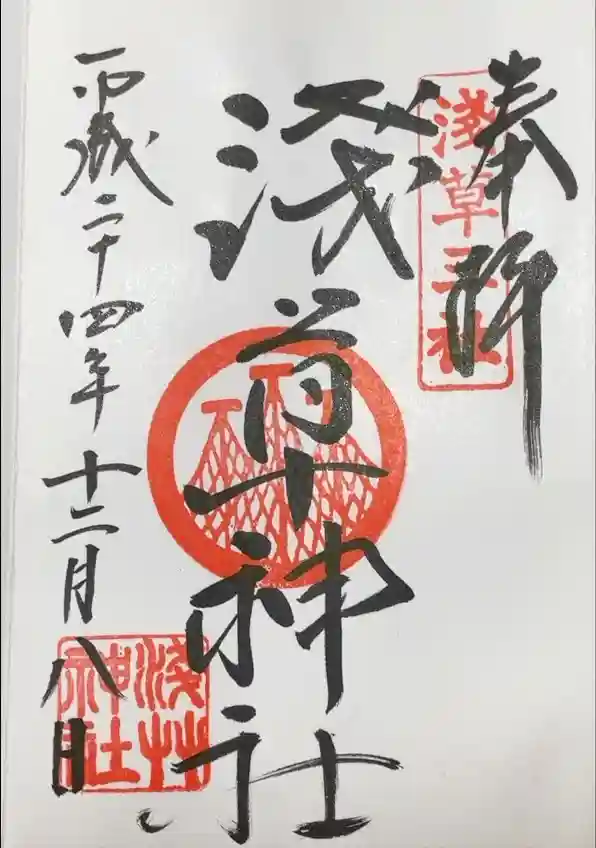 奉拝
淺草三社
淺草神社
平成二十四年十二月八日
淺草
神社